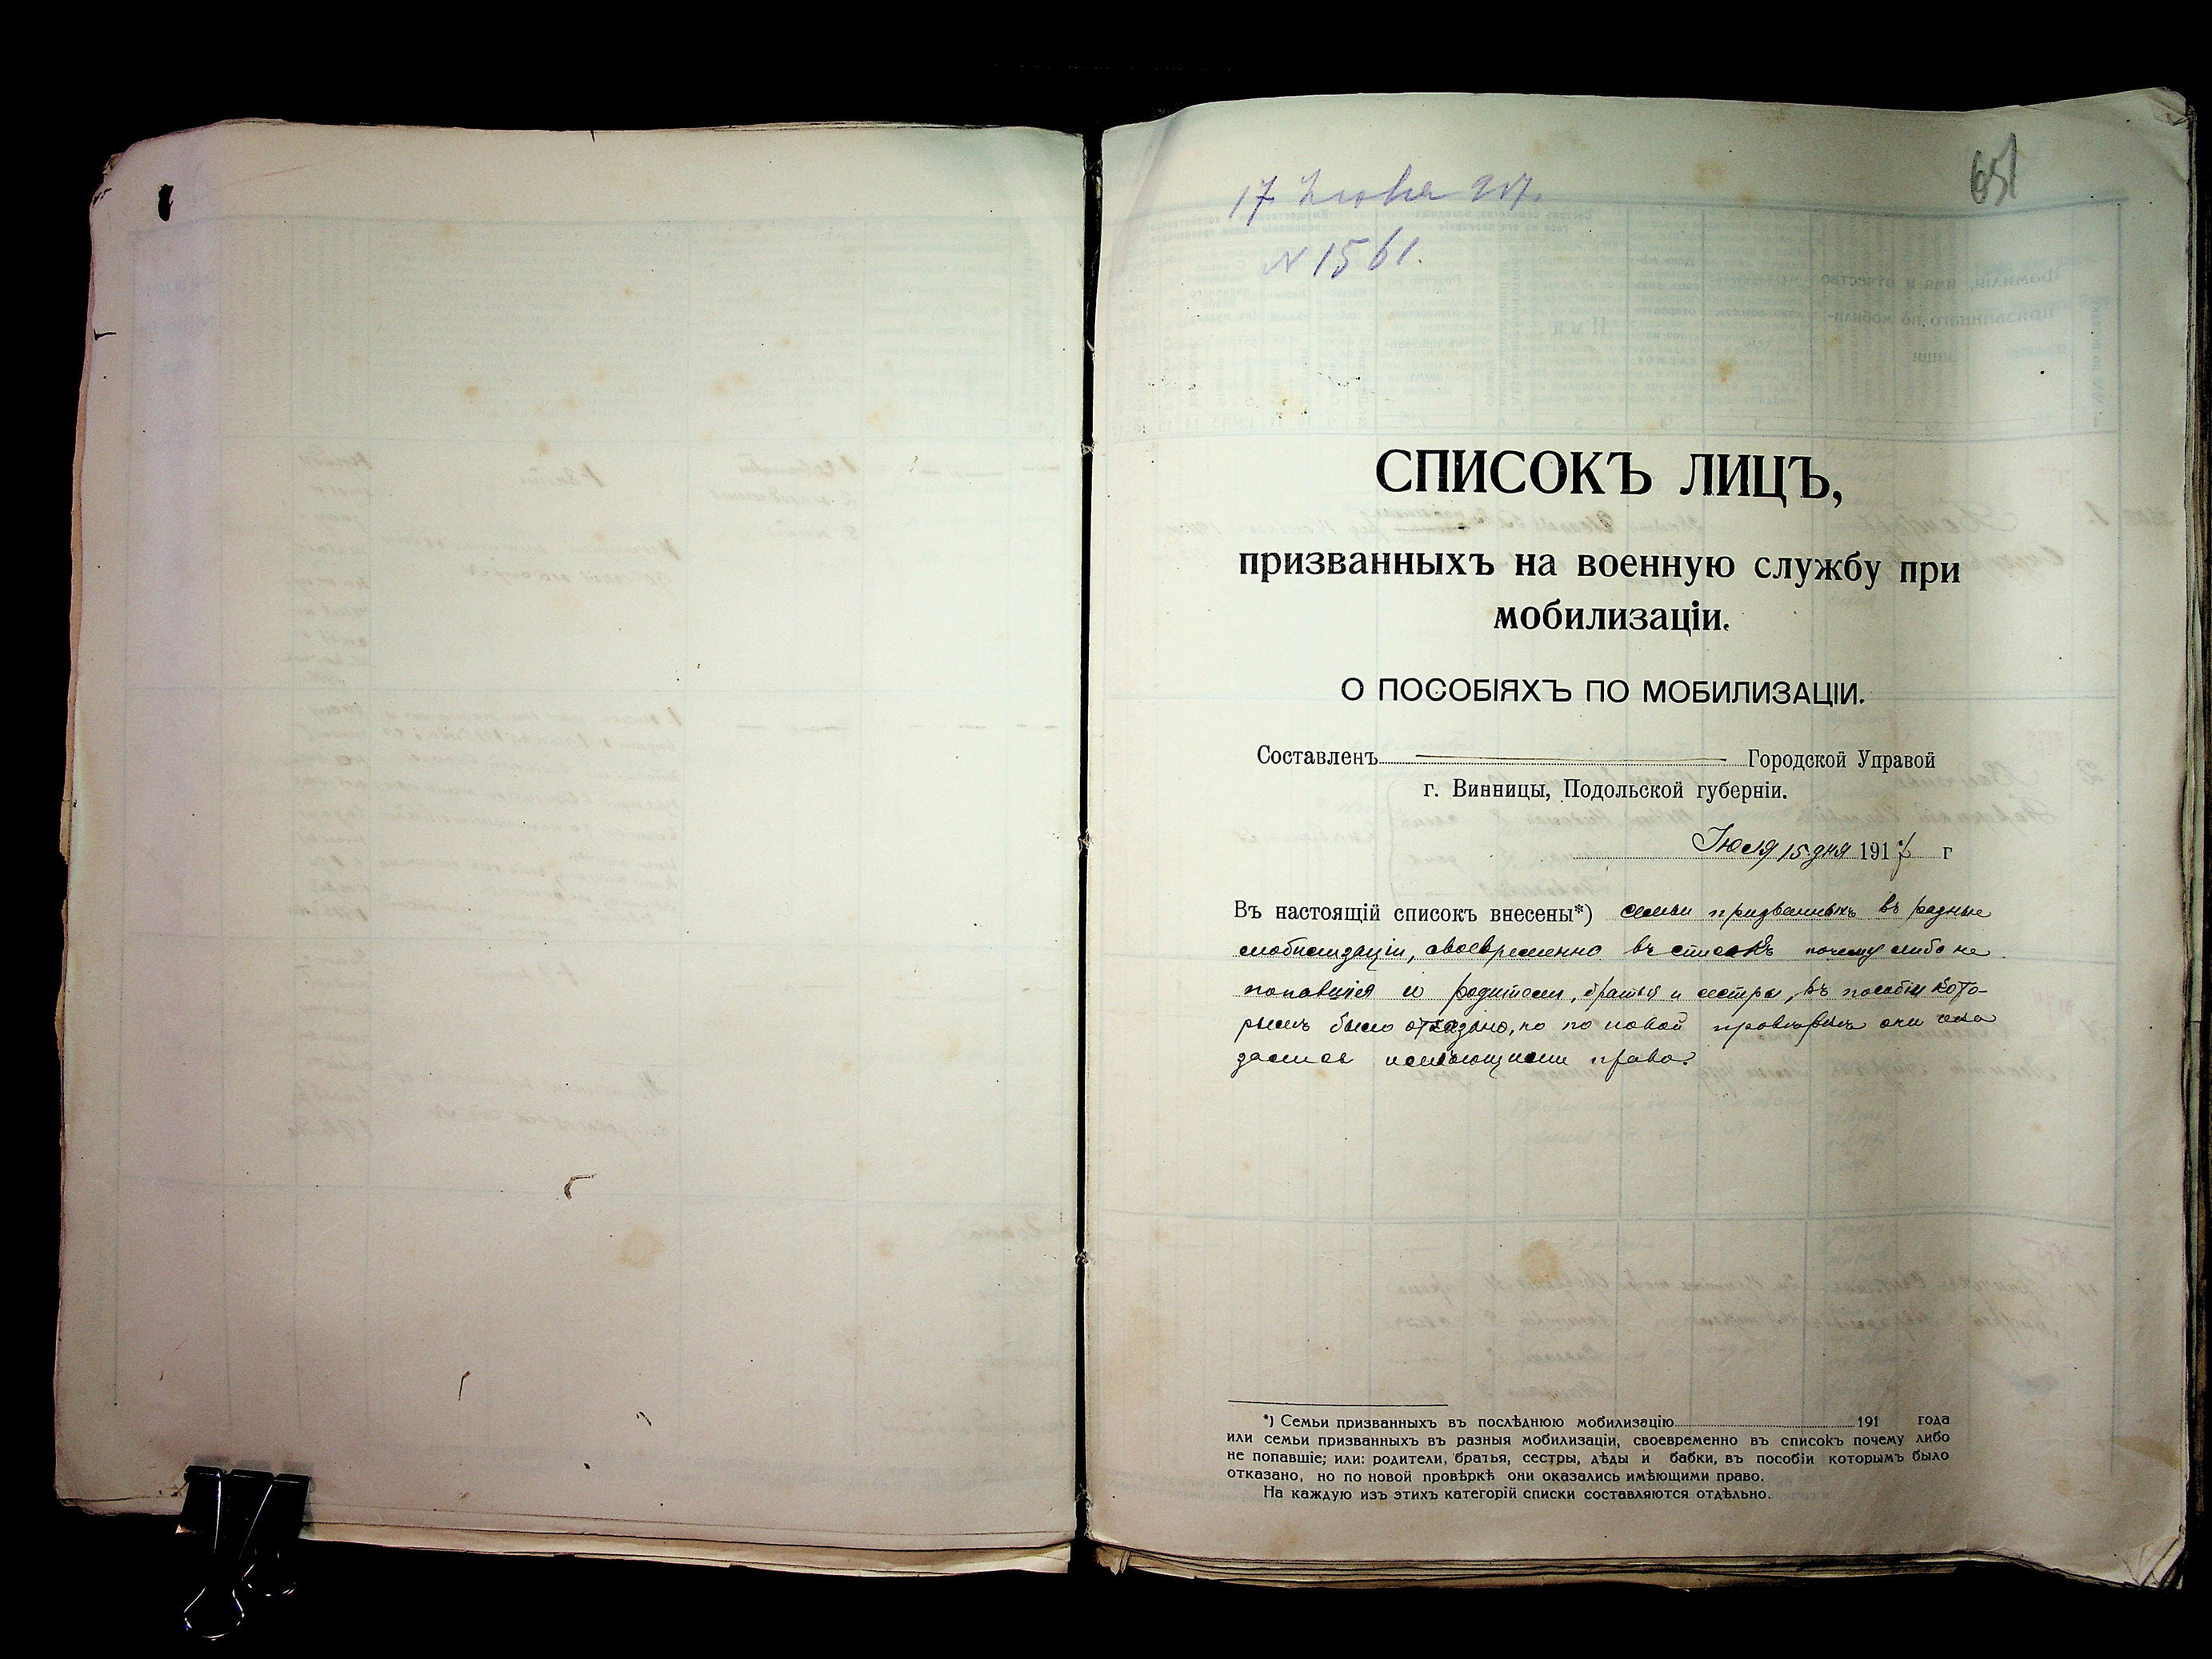 17 Іюля 917.
651
N 1561.
СПИСОКЪ ЛИЦЪ,
призванныхъ на военную службу при
мобилизаціи.
О ПОСОБІЯХЪ ПО МОБИЛИЗАЦІИ.
Составленъ Городской Управой
г. Винницы, Подольской губерніи.
Іюля 15 дня 1917 г
Въ настоящій списокъ внесены*) семьи призванныхъ въ разные
мобилизаціи, своевременно въ списокъ почему либо не
попавшія и родители, братья и сестры, въ пособіи кото-
рымъ было отказано, но по новой провѣркѣ они ока
зались имѣющими право.
*) Семьи призванныхъ въ послѣднюю мобилизацію 191 года
или семьи призванныхъ въ разныя мобилизаціи, своевременно въ списокъ почему либо
не попавшіе; или: родители, братья, сестры, дѣды и бабки, въ пособіи которымъ было
отказано, но по новой провѣркѣ они оказались имѣющими право.
На каждую изъ этихъ категорій списки составляются отдѣльно.